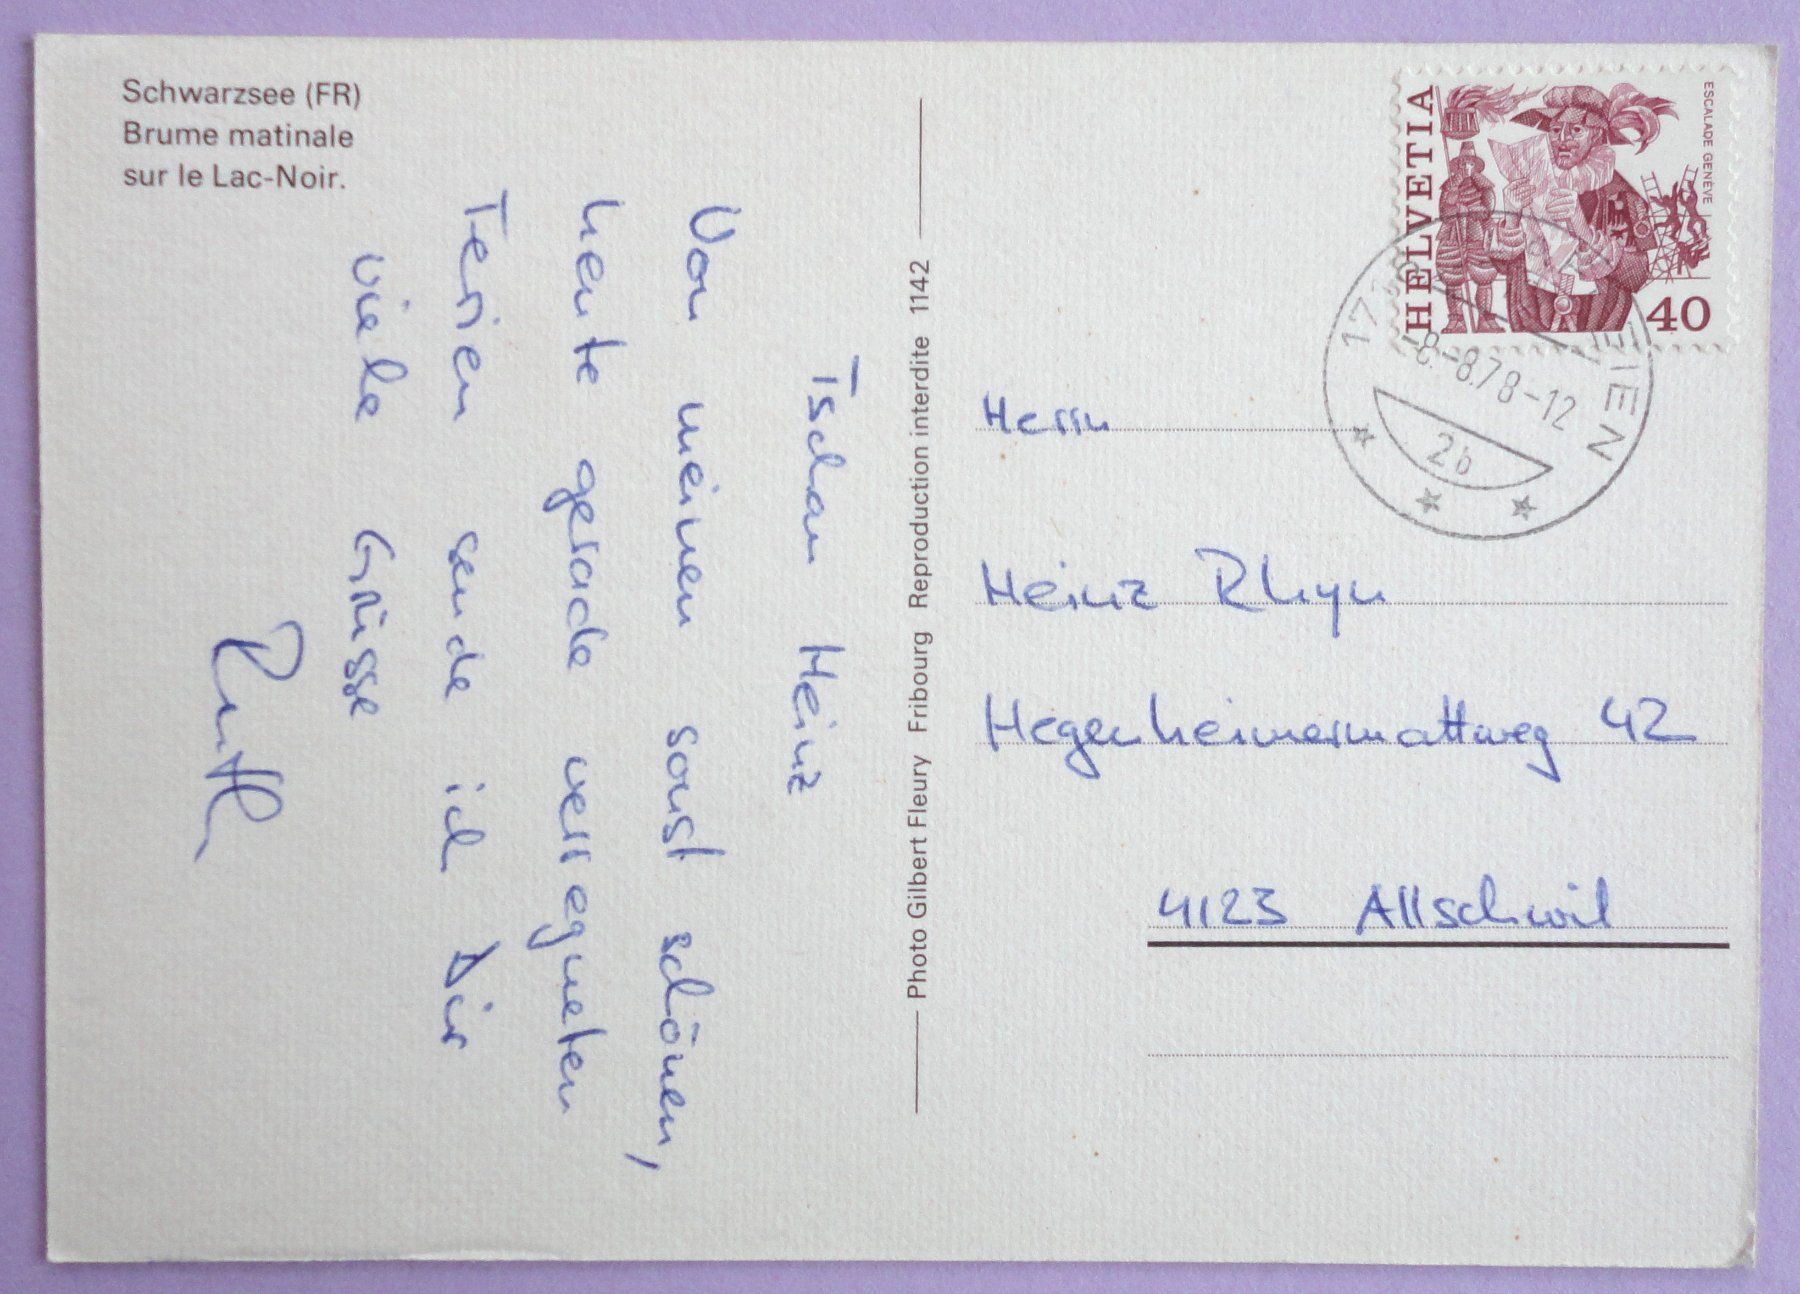 Schwarzsee (FR)
Brume matinale
sur le Lac-Noir.
Tschau Heinz
Von meinen sonst schönen,
heute gerade verregneten
Ferien sende ich Dir
viele Grüsse
Ruth
Photo Gilbert Fleury Fribourg Reproduction interdite 1142
HELVETIA
ESCALADE GENÈVE
40
-8.-8.78-12
2b
Herrn
Heinz Rhyn
Hegenheimermattweg 42
4123 Allschwil